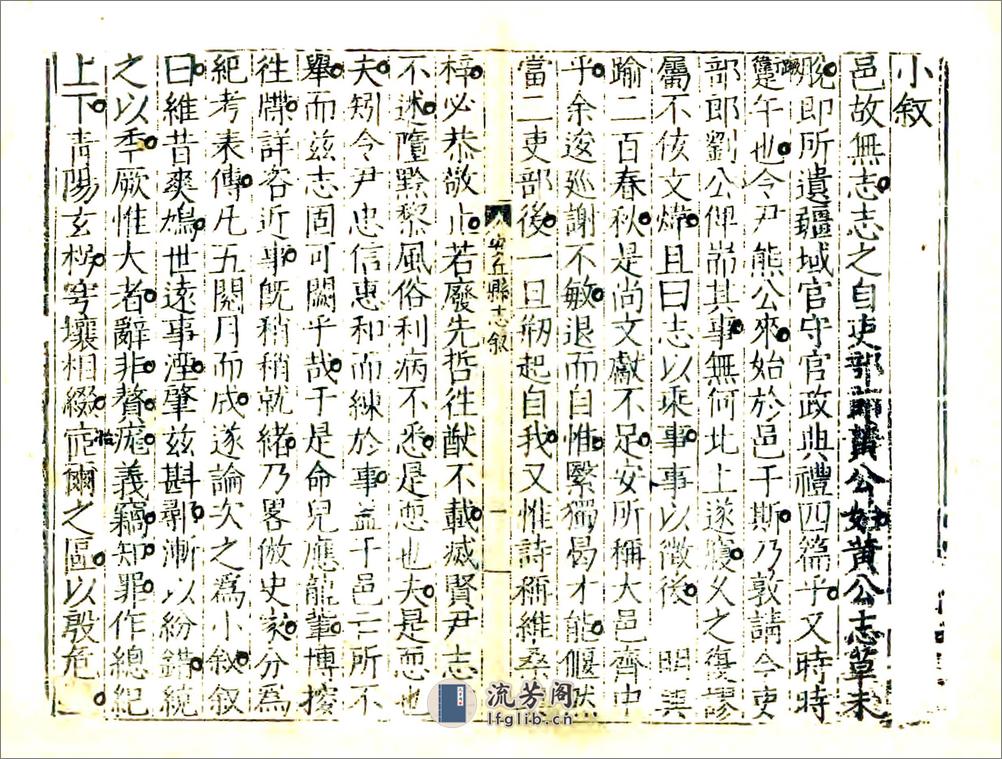 小叙
邑故無志志之自吏部郎黄公始黄公志草未
脫即所遺疆域官守官政典禮四篇乎又時時
踳午也令尹熊公來始於邑于斯乃敦請今吏
部郎劉公俾耑其事無何北上遂寢久之復謬
屬不佞文煒且曰志以乘事事以徵後 明興
踰二百春秋是尚文獻不足安所稱大邑齊中
乎余逡廵謝不敏退而自惟緊獨曷才能偃肰
當二吏部後一旦剏起自我又惟詩稱維桑與
安丘縣志叙
一
梓必恭敬止若廢先哲徃猷不載烕賢尹志
不述墮黔黎風俗利病不悉是恧也夫是恧也
夫矧令尹忠信惠和而練於事益于邑亡所不
舉而兹志固可闕乎哉于是命兒應龍輩博搜
徃牒詳咨近事旣稍稍就緒乃畧倣史家分爲
紀考表傳凡五閱月而成遂論次之爲小叙叙
曰維昔爽鳩世遠事湮肇兹斟鄩漸以紛錯統
之以季厥惟大者辭非贅疣義竊知罪作總紀
上下靑陽玄枵穹壤相綴㡯爾之區以殷危
流芳阁
lfglib.cn